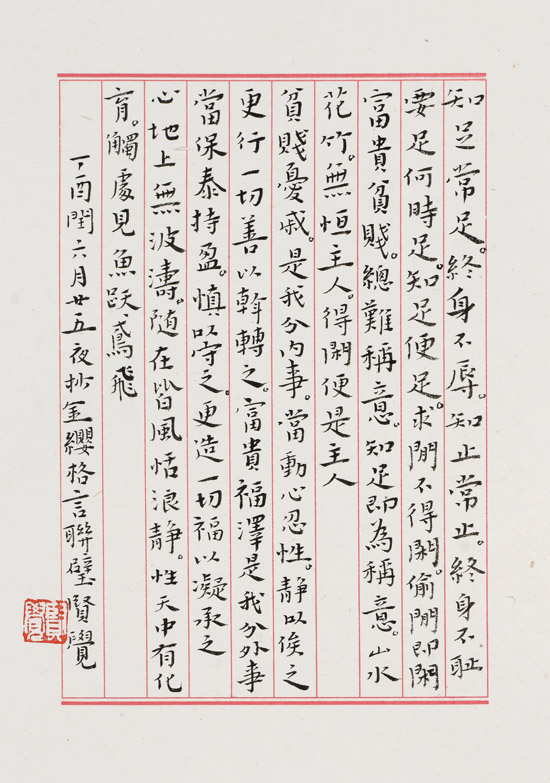 知足常足。終身不辱。知止常止。終身不恥
要足何時足。知足便足。求閒不得閒。偷閒即閒
富貴貧賤。總難稱意。知足即為稱意。山水
花竹。無恒主人。得閒便是主人
貧賤憂戚。是我分內事。當動心忍性。靜以俟之
更行一切善以斡轉之。富貴福澤是我分外事
當保泰持盈。慎以守之。更造一切福以凝承之
心地上無波濤。隨在皆風恬浪靜。性天中有化
育。觸處見魚躍鳶飛
丁酉閏六月廿五夜抄金纓格言聯璧賢覺
賢覺